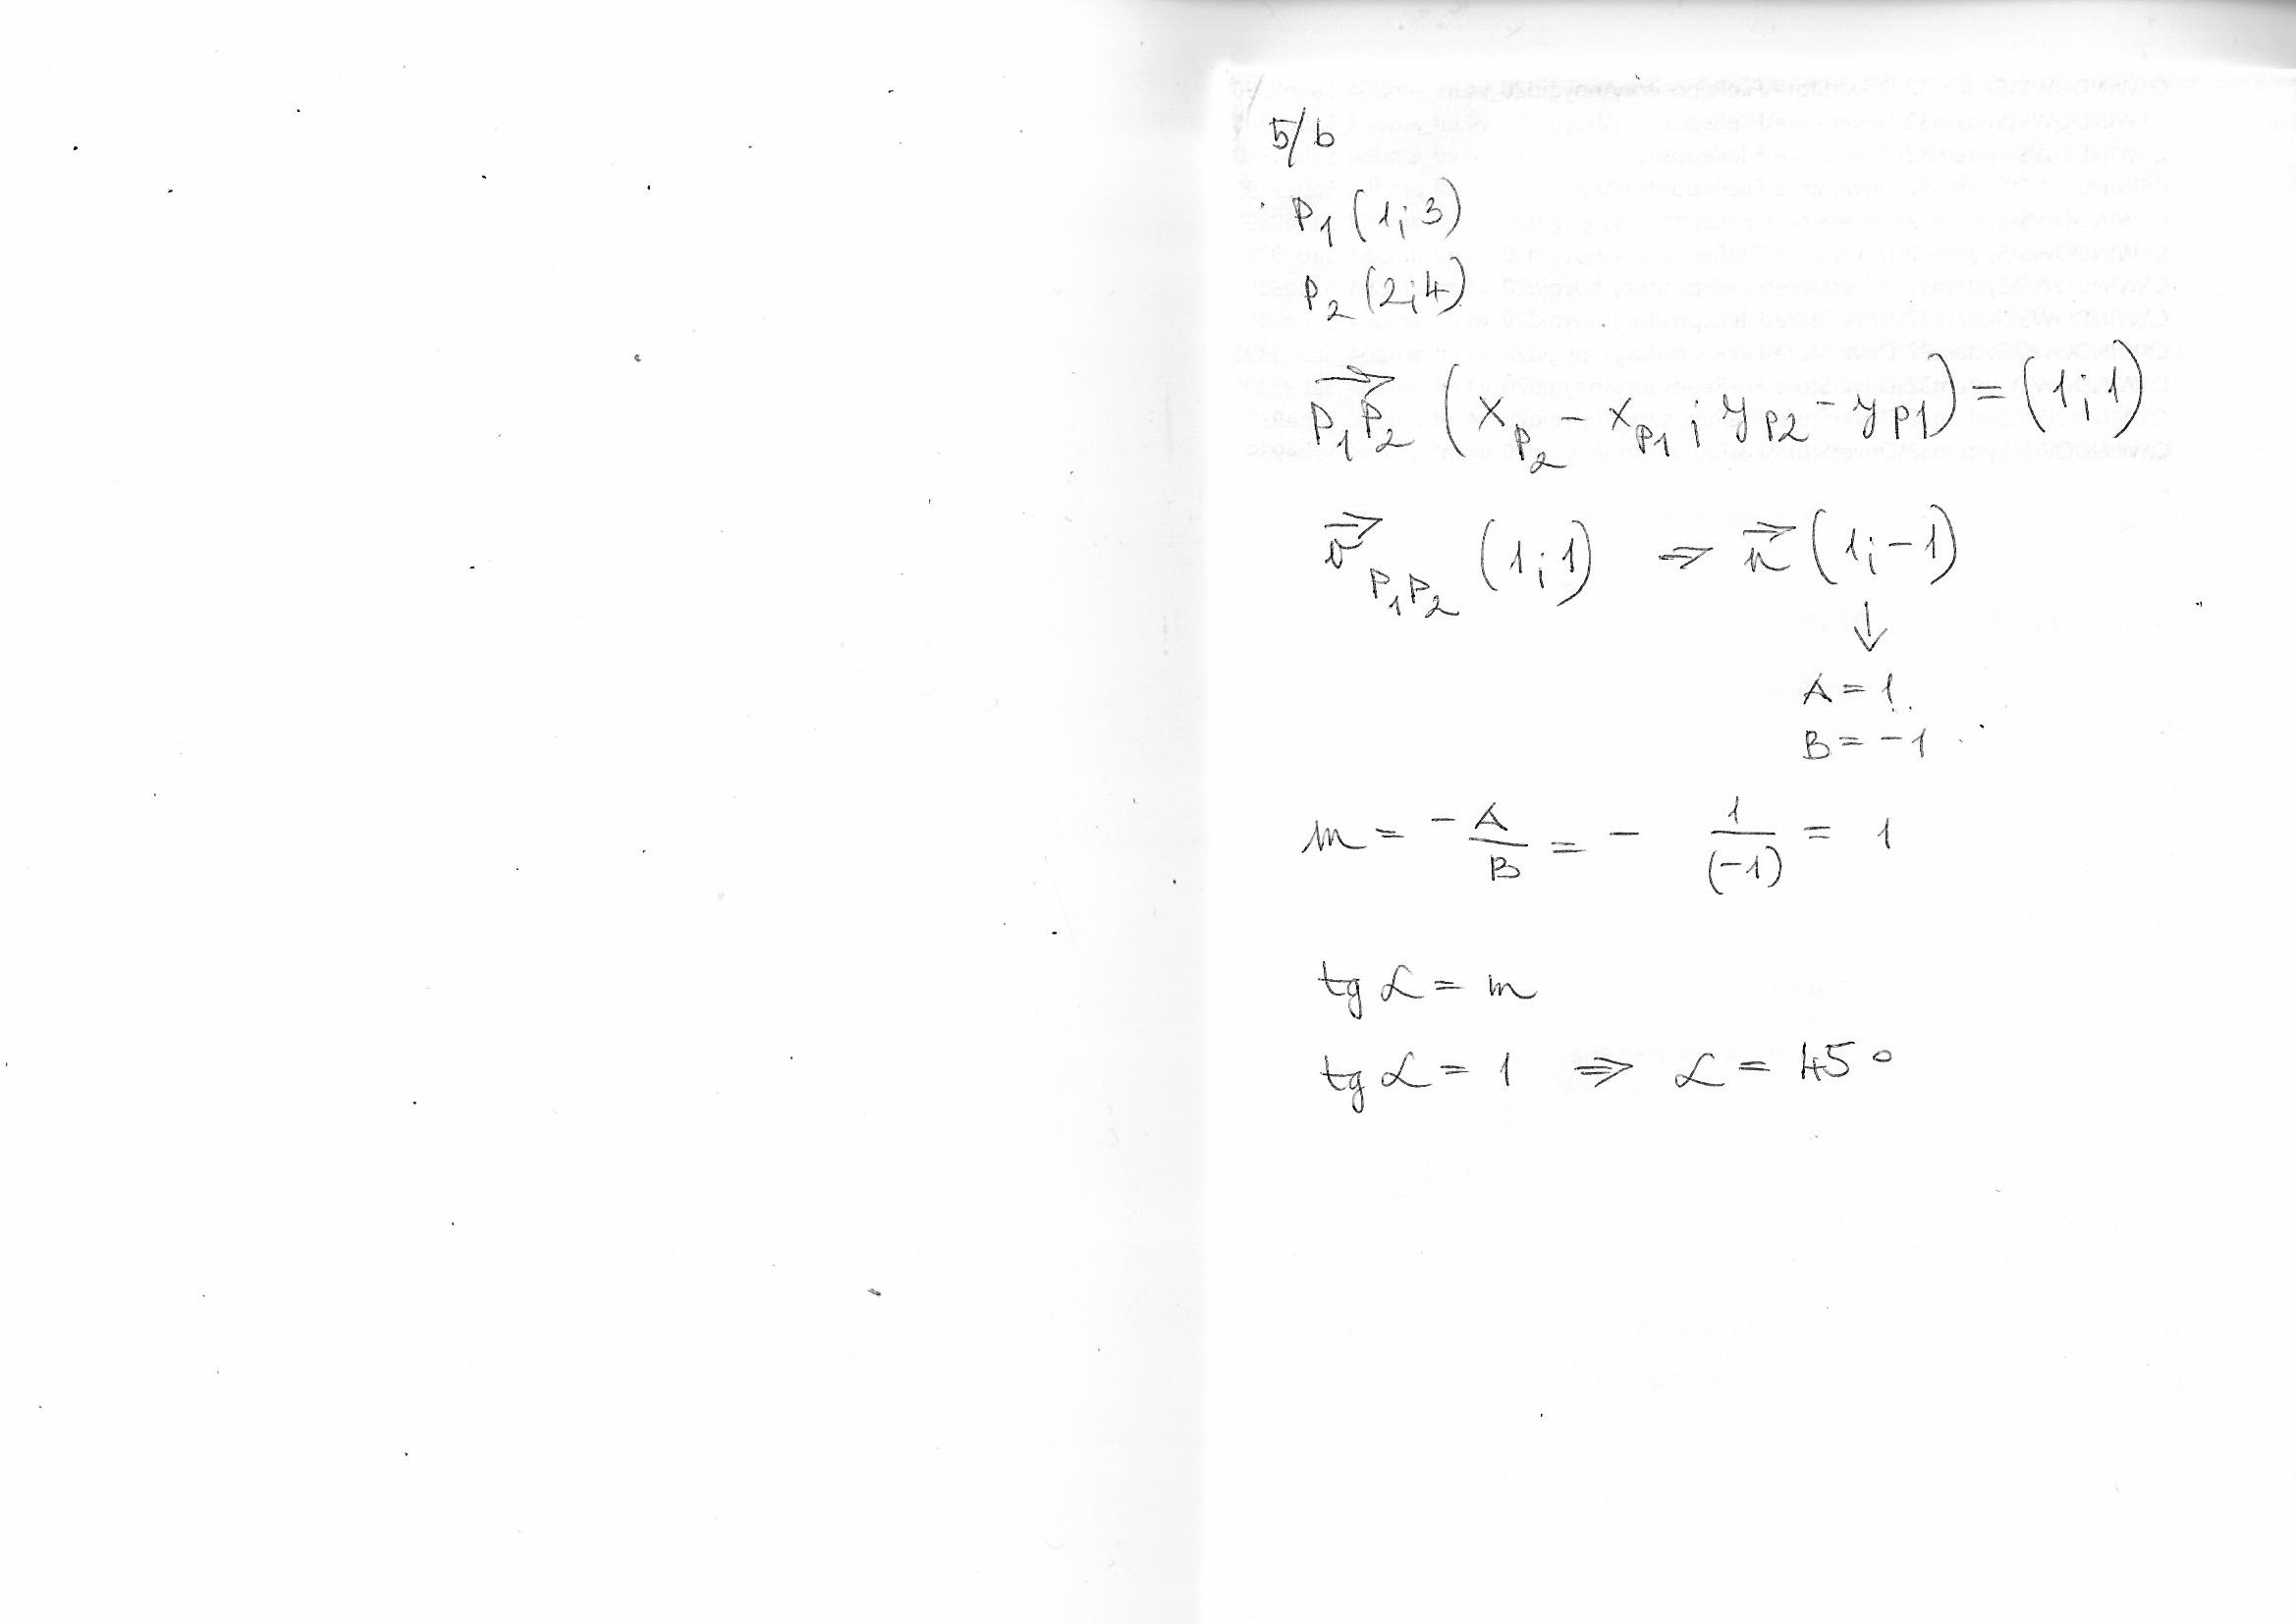 5/b
P₁ (1; 3)
P₂ (2; 4)
P₁P₂ (x_P₂ - x_P1 ; y_P2 - y_P1) = (1; 1)
v P₁P₂ (1; 1) ⇒ n (1; -1)
↓
A = 1
B = -1
m = -A/B = - 1/(-1) = 1
tg α = m
tg α = 1 ⇒ α = 45°